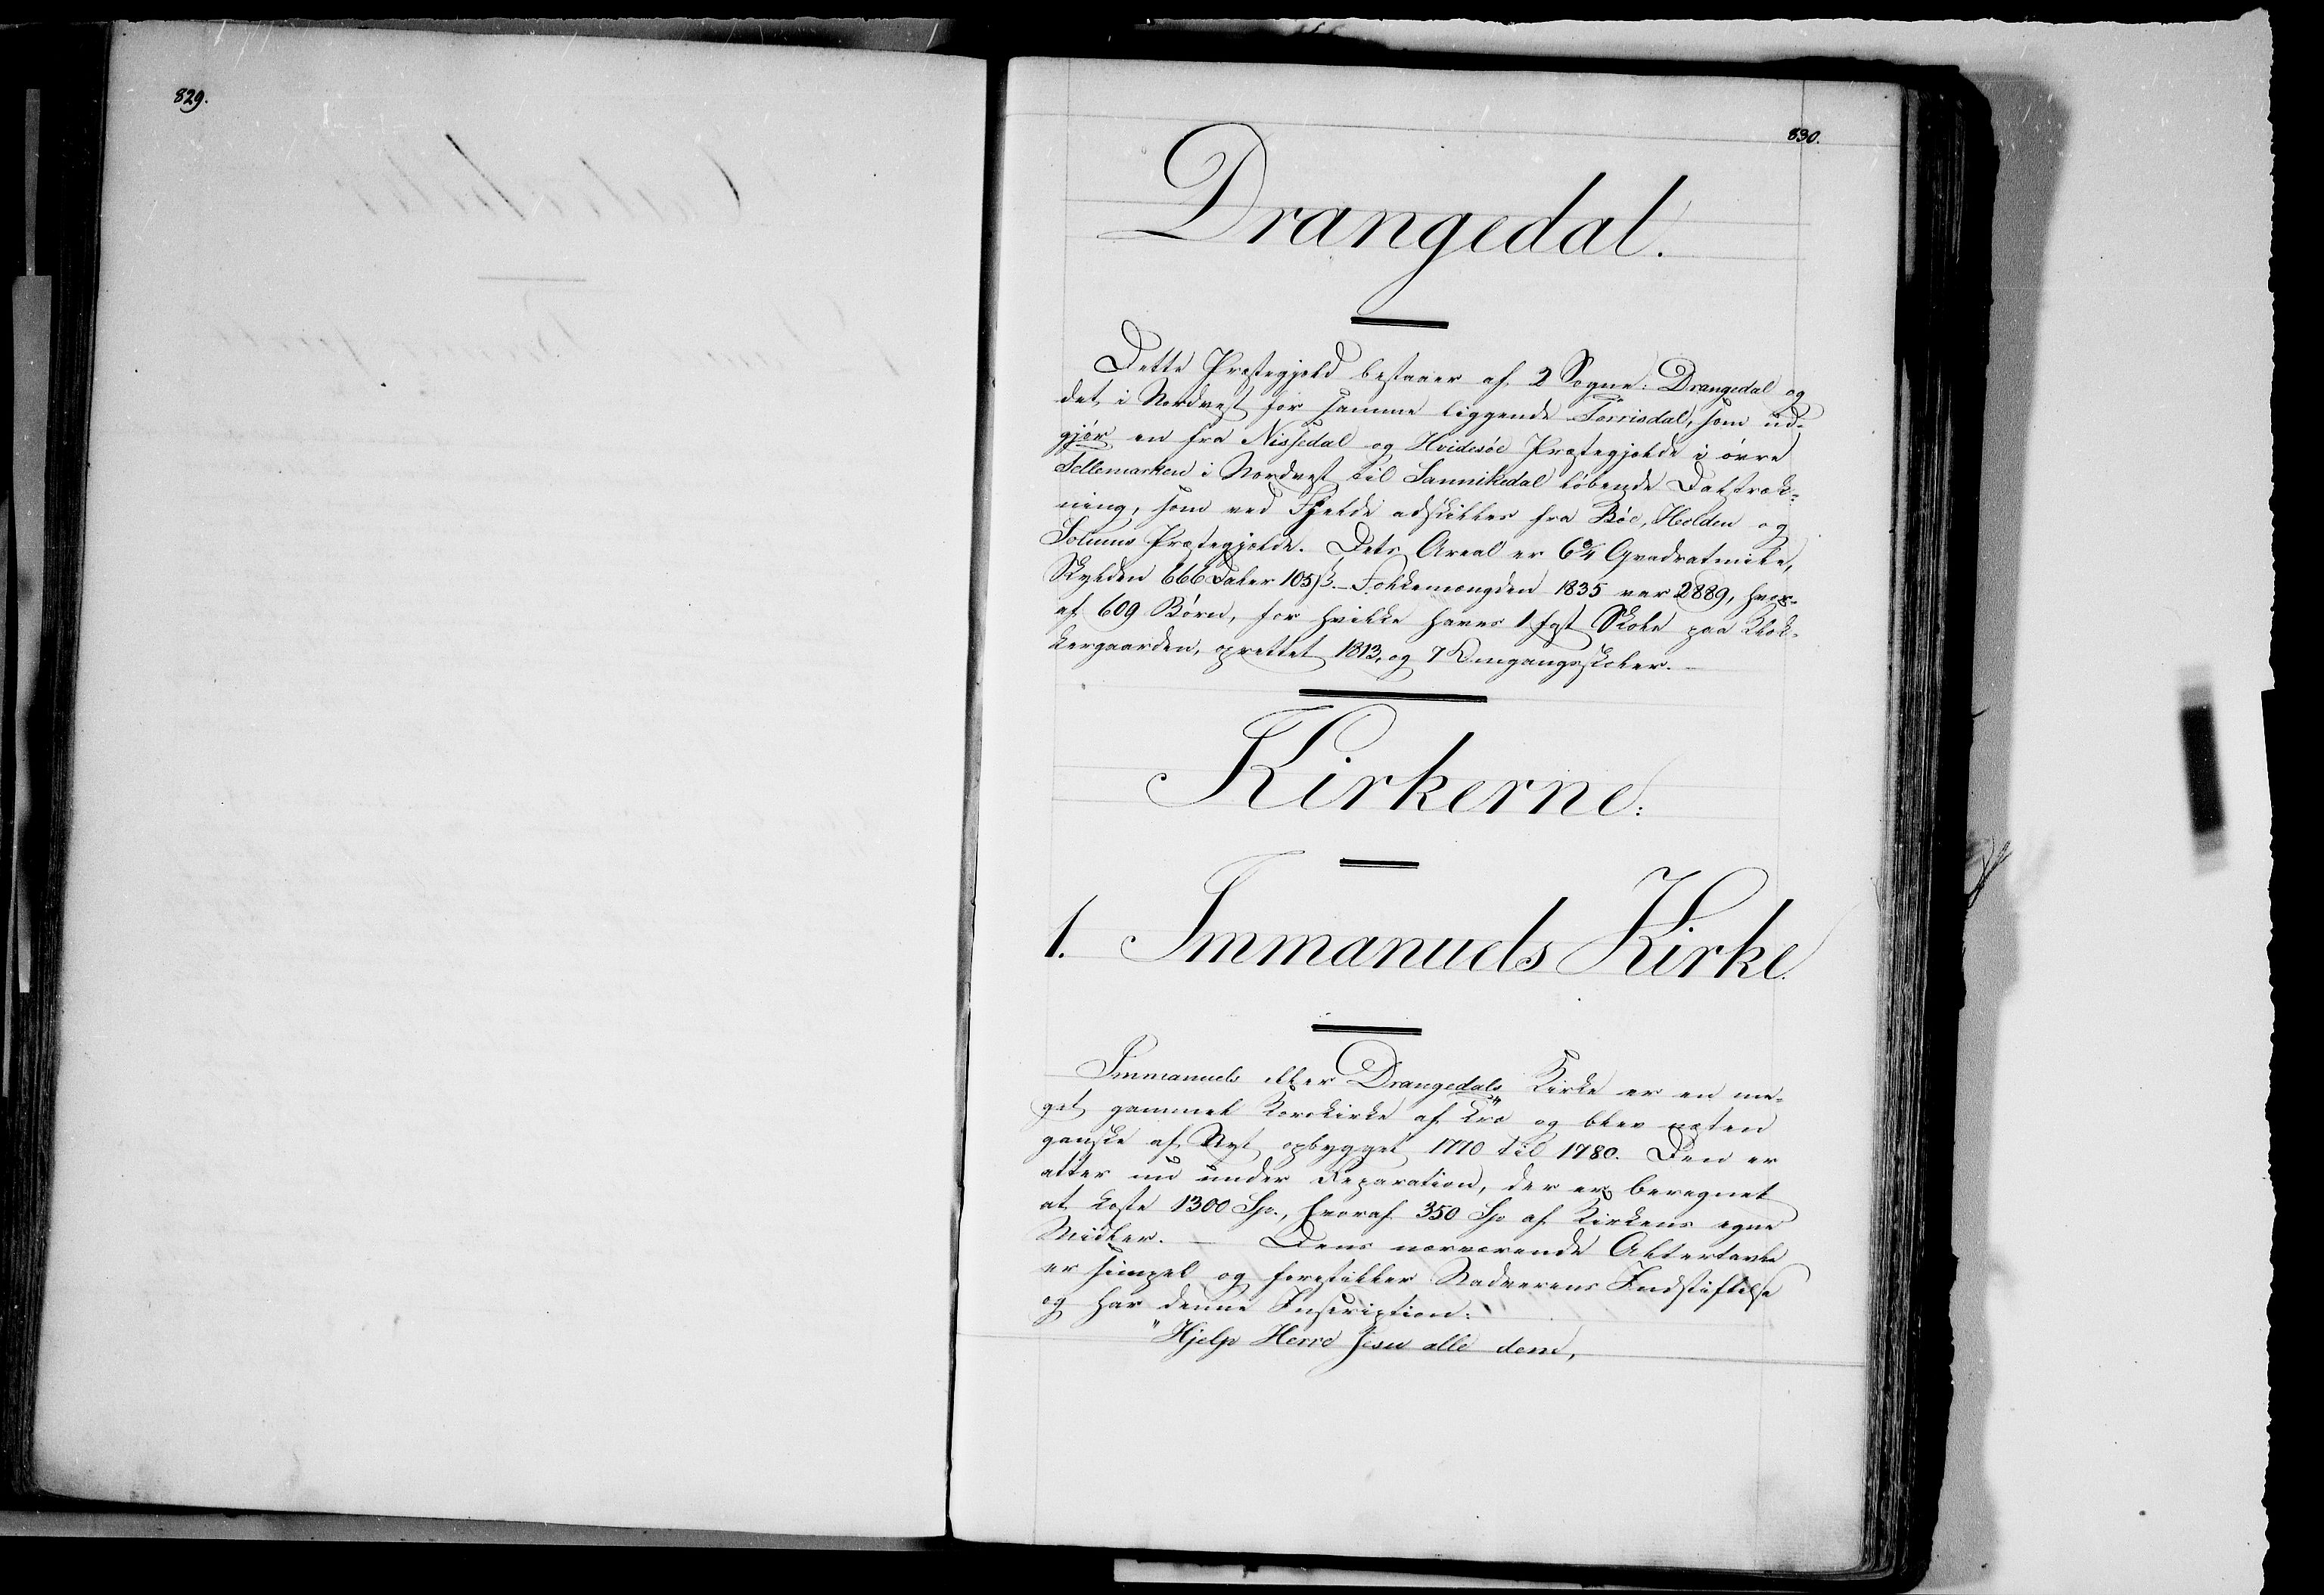 829.
830.
Drangedal.
Dette Præstegjeld bestaaer af 2 Sogne: Drangedal og
det i Nordvest for samme liggende Torrisdal, som ud-
gjør en fra Nissedal og Hvidesöe Præstegjelde i øvre
Tellemarken i Nordvest til Sannikedal løbende Dalstræk-
ning, som ved Fjelde adskilles fra Böe, Holden og
Solums Præstegjelde. Dets Areal er 6¾ Qvadratmile,
Skylden 666 Daler 105 ß. Folkemængden 1835 var 2889, hvor-
af 609 Børn, for hvilke haves 1 fast Skole paa Klok-
kergaarden, oprettet 1813, og 7 Omgangsskoler. –
Kirkerne:
1. Immanuels Kirke.
Immanuels eller Drangedals Kirke er en me-
get gammel Korskirke af Træ og blev næsten
ganske af Nyt opbygget 1770 til 1780. Den er
atter nu under Reparation, der er beregnet
at koste 1300 Sp., hvoraf 350 Sp af Kirkens egne
Midler. – Dens nærværende Altertavle
er simpel og forestiller Nadverens Indstiftelse
og har denne Inscription:
"Hjelp Herre Jesu alle dem,